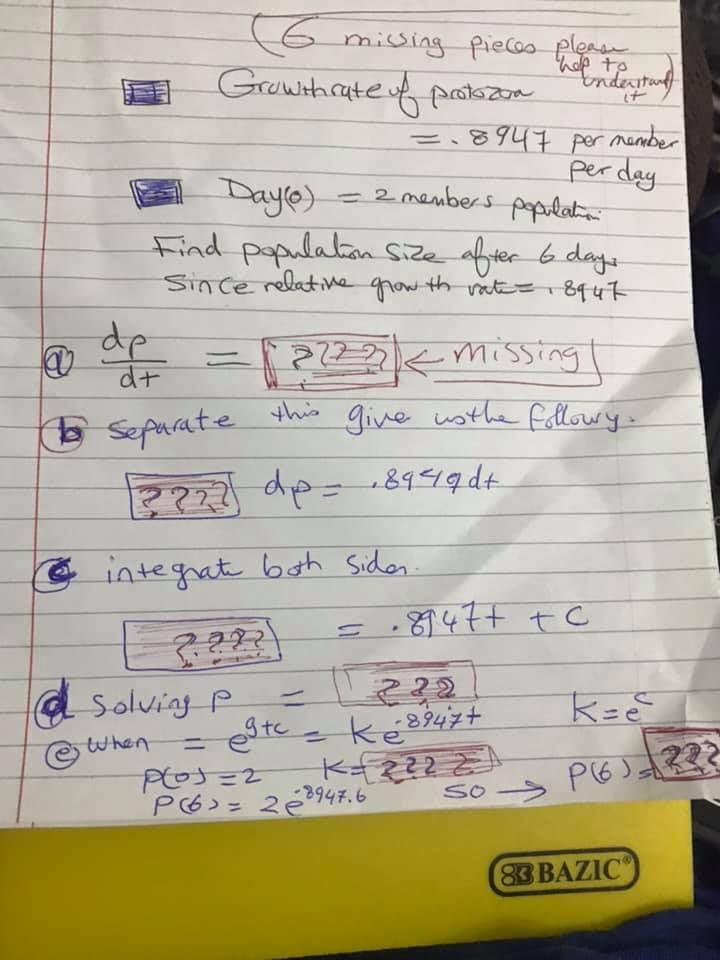 (6 missing pieces please
help to
understand
it)
Growth rate of protozoa
= .8947 per member
per day
Day(0) = 2 members population.
Find population size after 6 days.
Since relative growth rate = .8947
a) dp/dt = ????? ← missing
b) Separate this give us the followy.
???? dp = .8949dt
c) integrate both sides.
???? = .8947t + C
d) Solving P = ???
K = e^c
e) when = e^9+c = Ke^.8947t
P(0) = 2 K = ????
P(6) = 2e^.8947.6 so → P(6) = ???
BAZIC®